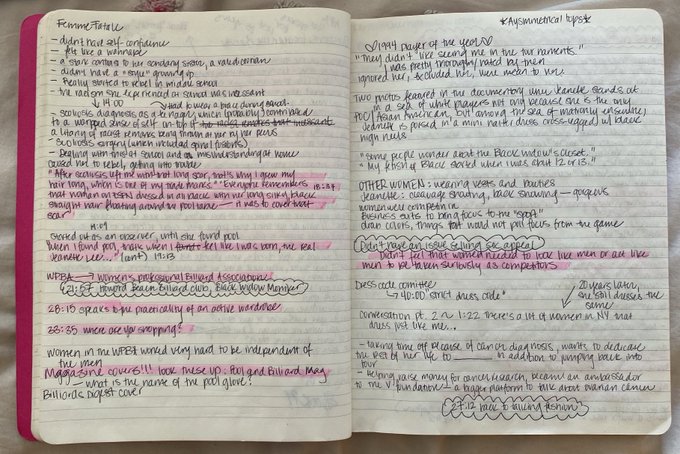 Femme Fatale
- didn't have self-confidence
- felt like a wannabe
- a stark contrast to her sending sister, a valedictorian
- didn't have a "style" growing up
- Really started to rebel in middle school
- the racism she experienced at school was incessant
↳ 14:00
↳ had to wear a brace during school
- scoliosis diagnosis as a teenage, which (probably) contributed
to a warped sense of self on top of the racist remarks that incessant
a litany of racist remarks being thrown at her by her peers
- scoliosis surgery (which included spinal fusions)
- Dealing with this at school and a misunderstanding at home
caused her to rebel, getting into trouble
"After scoliosis left me with that long scar, that's why I grew my
hair long, which is one of my trade marks." "Everyone remembers 18:24
that woman on ESPN dressed in all black with her long silky, black
straight hair floating around the pool table — it was to cover that
scar"
19:09
started out as an observer, until she found pool
"when I found pool, that's when I feel like I was born, the real
Jeanette Lee..." (ant) 19:13
WPBA → Women's professional Billiard Association
21:57 Howard Beach Billiard club, Black Widow Moniker
28:15 speaks to the practicality of an active wardrobe
33:35 where are you shopping?
women in the WPBA worked very hard to be independent of
the men
Magazine covers!!! look these up: Pool and Billiard Mag
- what is the name of the pool glove?
Billiards Digest cover
*Aysmmetrical tops*
♡1994 player of the year♡
"They didn't like seeing me in the tournaments."
"I was pretty thoroughly hated by them"
ignored her, excluded her, were mean to her.
Two photos featured in the documentary where Jeanette stands out
in a sea of white players not only because she is the only
POC/Asian American, but among the sea of matronly ensembles,
Jeanette is posed in a mini halter dress cross-legged w/ black
high heels
"Some people wonder about the Black Widow's closet."
"My fetish of Black started when I was about 12 or 13."
OTHER WOMEN: wearing vests and bowties
Jeanette: cleavage showing, back showing — gorgeous
women were competing in
Business suits to bring focus to the "sport"
drab colors, things that would not pull focus from the game
Didn't have an issue selling sex appeal
Didn't feel that women needed to look like men or act like
men to be taken seriously as competitors
Dress code comittee
↳ 40:00 strict dress code*
20 years later,
she still dresses the
same
Conversation pt. 2 ~ 1:22 there's a lot of women in NY that
dress just like me...
- taking time off because of cancer diagnosis, wants to dedicate
the rest of her life to ______ in addition to jumping back into
tour
- helping raise money for cancer research, became an ambassador
to the V foundation — a bigger platform to talk about ovarian cancer
27:12 back to talking fashion